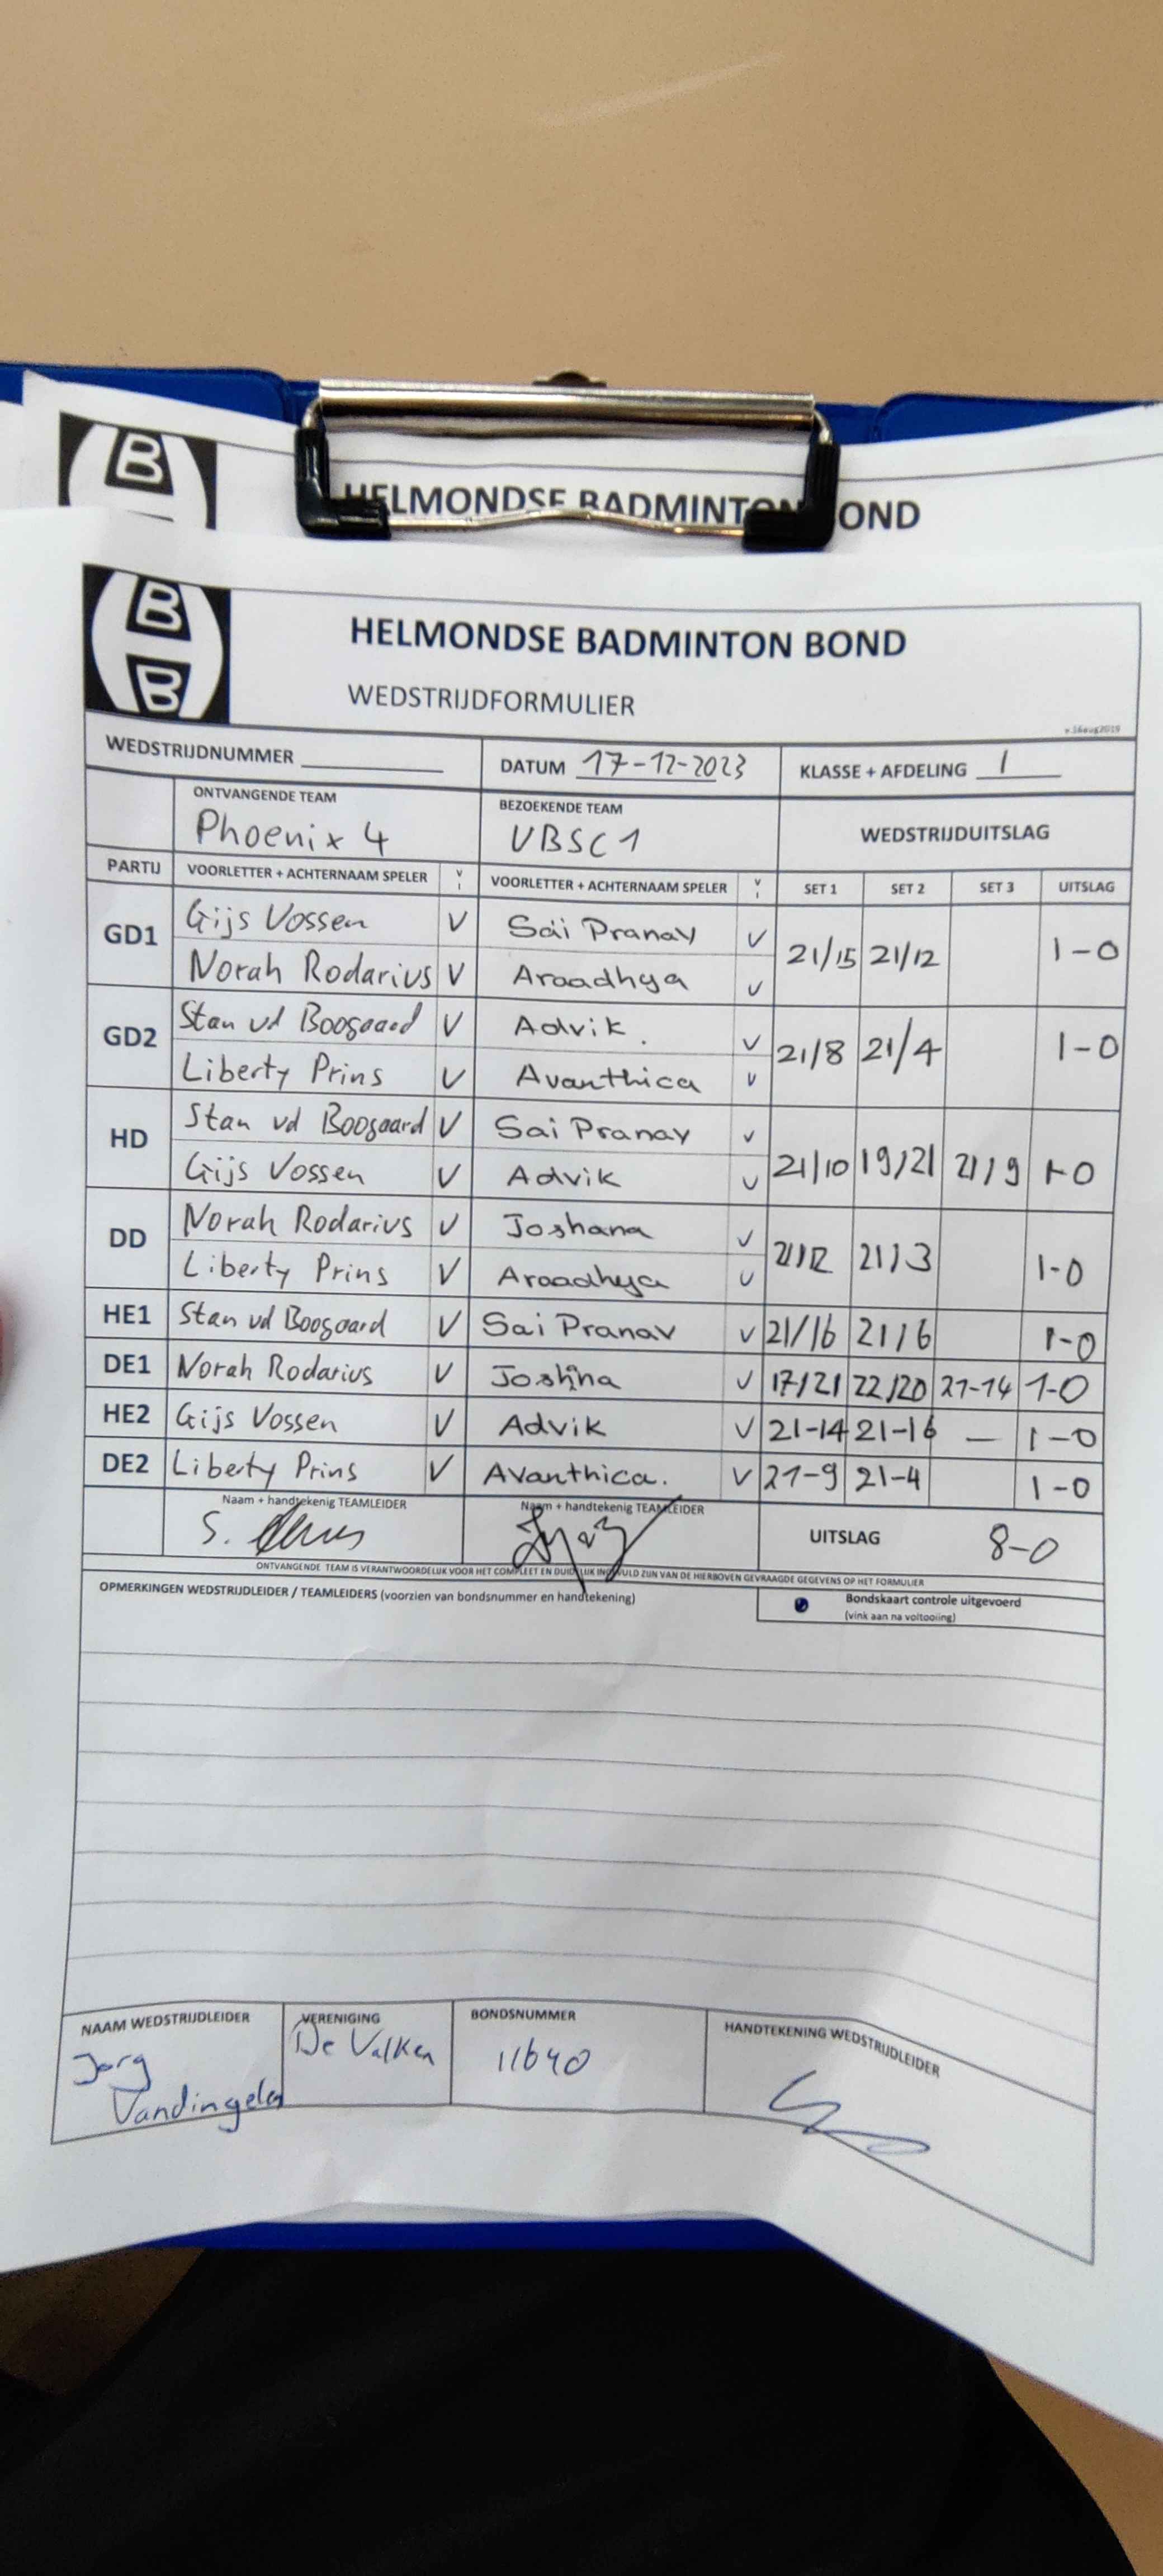 B
HELMONDSE BADMINTON BOND
B
B
HELMONDSE BADMINTON BOND
WEDSTRIJDFORMULIER
v.16aug2019
WEDSTRIJDNUMMER DATUM 17-12-2023 KLASSE + AFDELING 1
ONTVANGENDE TEAM BEZOEKENDE TEAM WEDSTRIJDUITSLAG
Phoenix 4 VBSC1
PARTIJ VOORLETTER + ACHTERNAAM SPELER V VOORLETTER + ACHTERNAAM SPELER V SET 1 SET 2 SET 3 UITSLAG
GD1 Gijs Vossen V Sai Pranav V 21/15 21/12 1-0
Norah Rodarius V Araadhya V
GD2 Stan vd Boogaard V Advik. V 21/8 21/4 1-0
Liberty Prins V Avanthica V
HD Stan vd Boogaard V Sai Pranav V 21/10 19/21 21/9 1-0
Gijs Vossen V Advik V
DD Norah Rodarius V Joshana V 21/12 21/3 1-0
Liberty Prins V Araadhya V
HE1 Stan vd Boogaard V Sai Pranav V 21/16 21/6 1-0
DE1 Norah Rodarius V Joshna V 17/21 22/20 21-14 1-0
HE2 Gijs Vossen V Advik V 21-14 21-16 — 1-0
DE2 Liberty Prins V Avanthica. V 21-9 21-4 1-0
Naam + handtekenig TEAMLEIDER Naam + handtekenig TEAMLEIDER UITSLAG 8-0
S.
ONTVANGENDE TEAM IS VERANTWOORDELIJK VOOR HET COMPLEET EN DUIDELIJK INGEVULD ZIJN VAN DE HIERBOVEN GEVRAAGDE GEGEVENS OP HET FORMULIER
OPMERKINGEN WEDSTRIJDLEIDER / TEAMLEIDERS (voorzien van bondsnummer en handtekening) Bondskaart controle uitgevoerd
(vink aan na voltooiing)
NAAM WEDSTRIJDLEIDER VERENIGING BONDSNUMMER HANDTEKENING WEDSTRIJDLEIDER
Jorg De Valken 11640